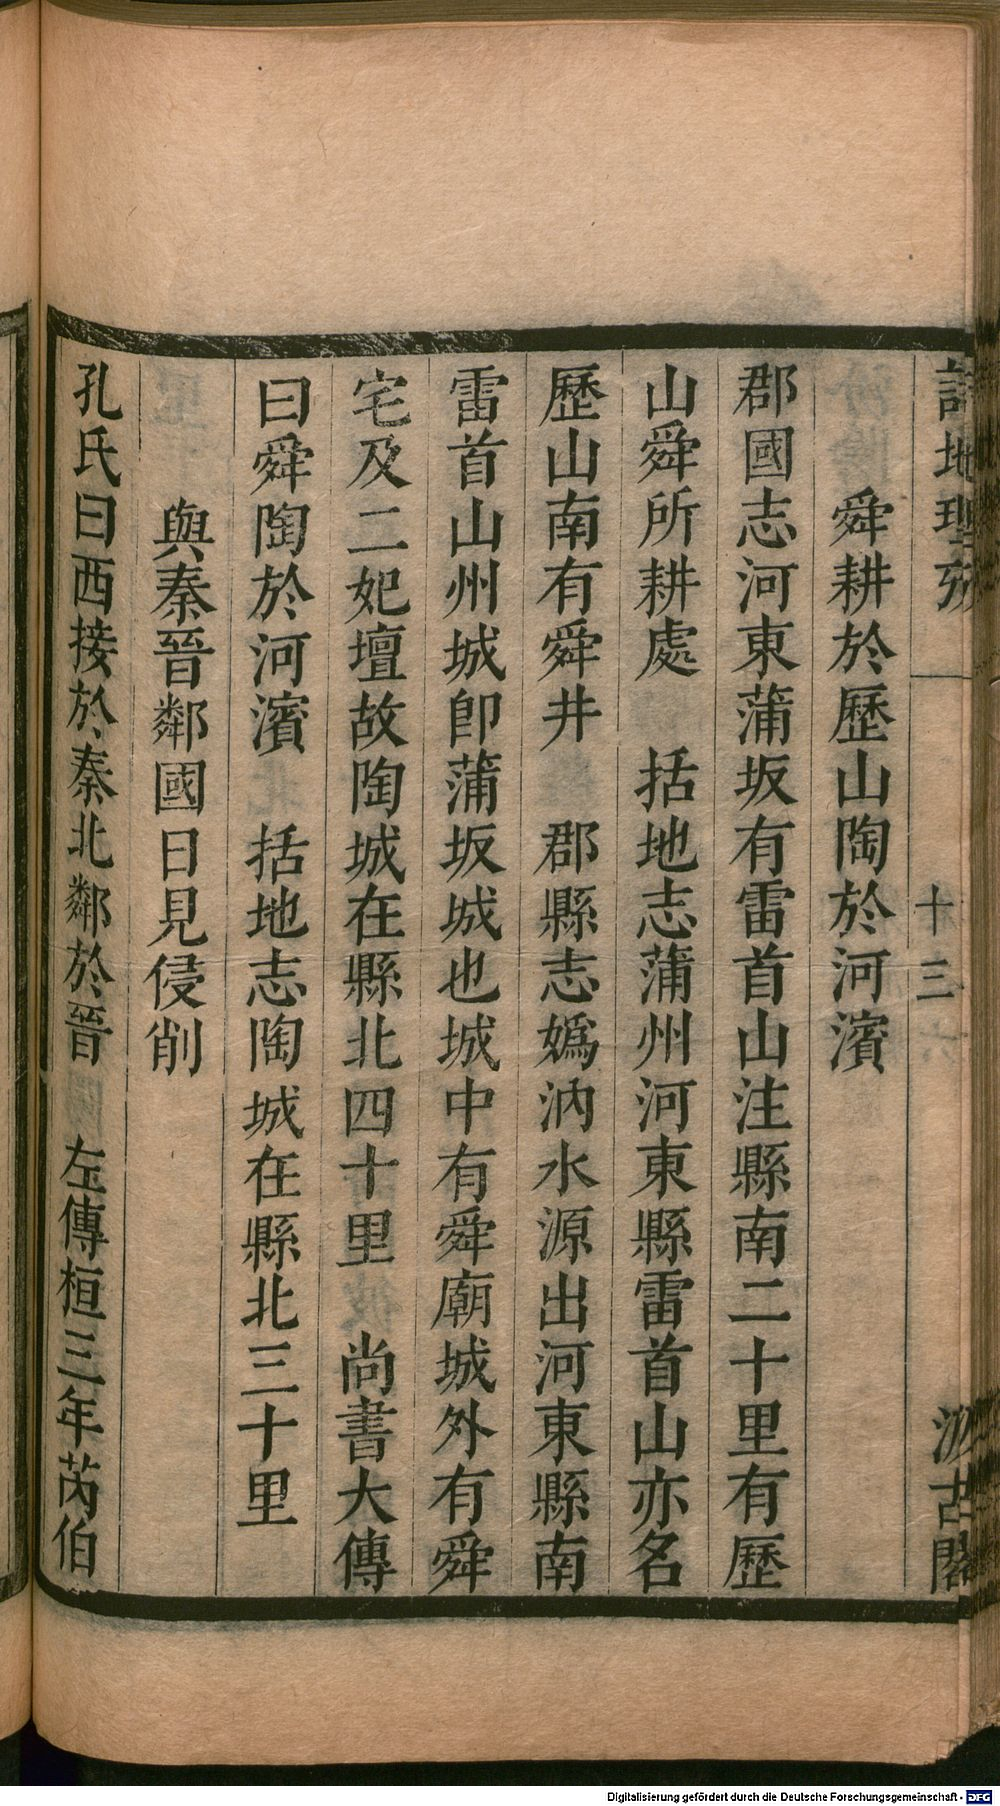 詩地理攷
十三
汲古閣
舜耕於歷山陶於河濱
郡國志河東蒲坂有雷首山注縣南二十里有歷
山舜所耕處　括地志蒲州河東縣雷首山亦名
歷山南有舜井　郡縣志嬀汭水源出河東縣南
雷首山州城卽蒲坂城也城中有舜廟城外有舜
宅及二妃壇故陶城在縣北四十里　尚書大傳
曰舜陶於河濱　括地志陶城在縣北三十里
與秦晉鄰國日見侵削
孔氏曰西接於秦北鄰於晉　左傳桓三年芮伯
Digitalisierung gefördert durch die Deutsche Forschungsgemeinschaft - DFG